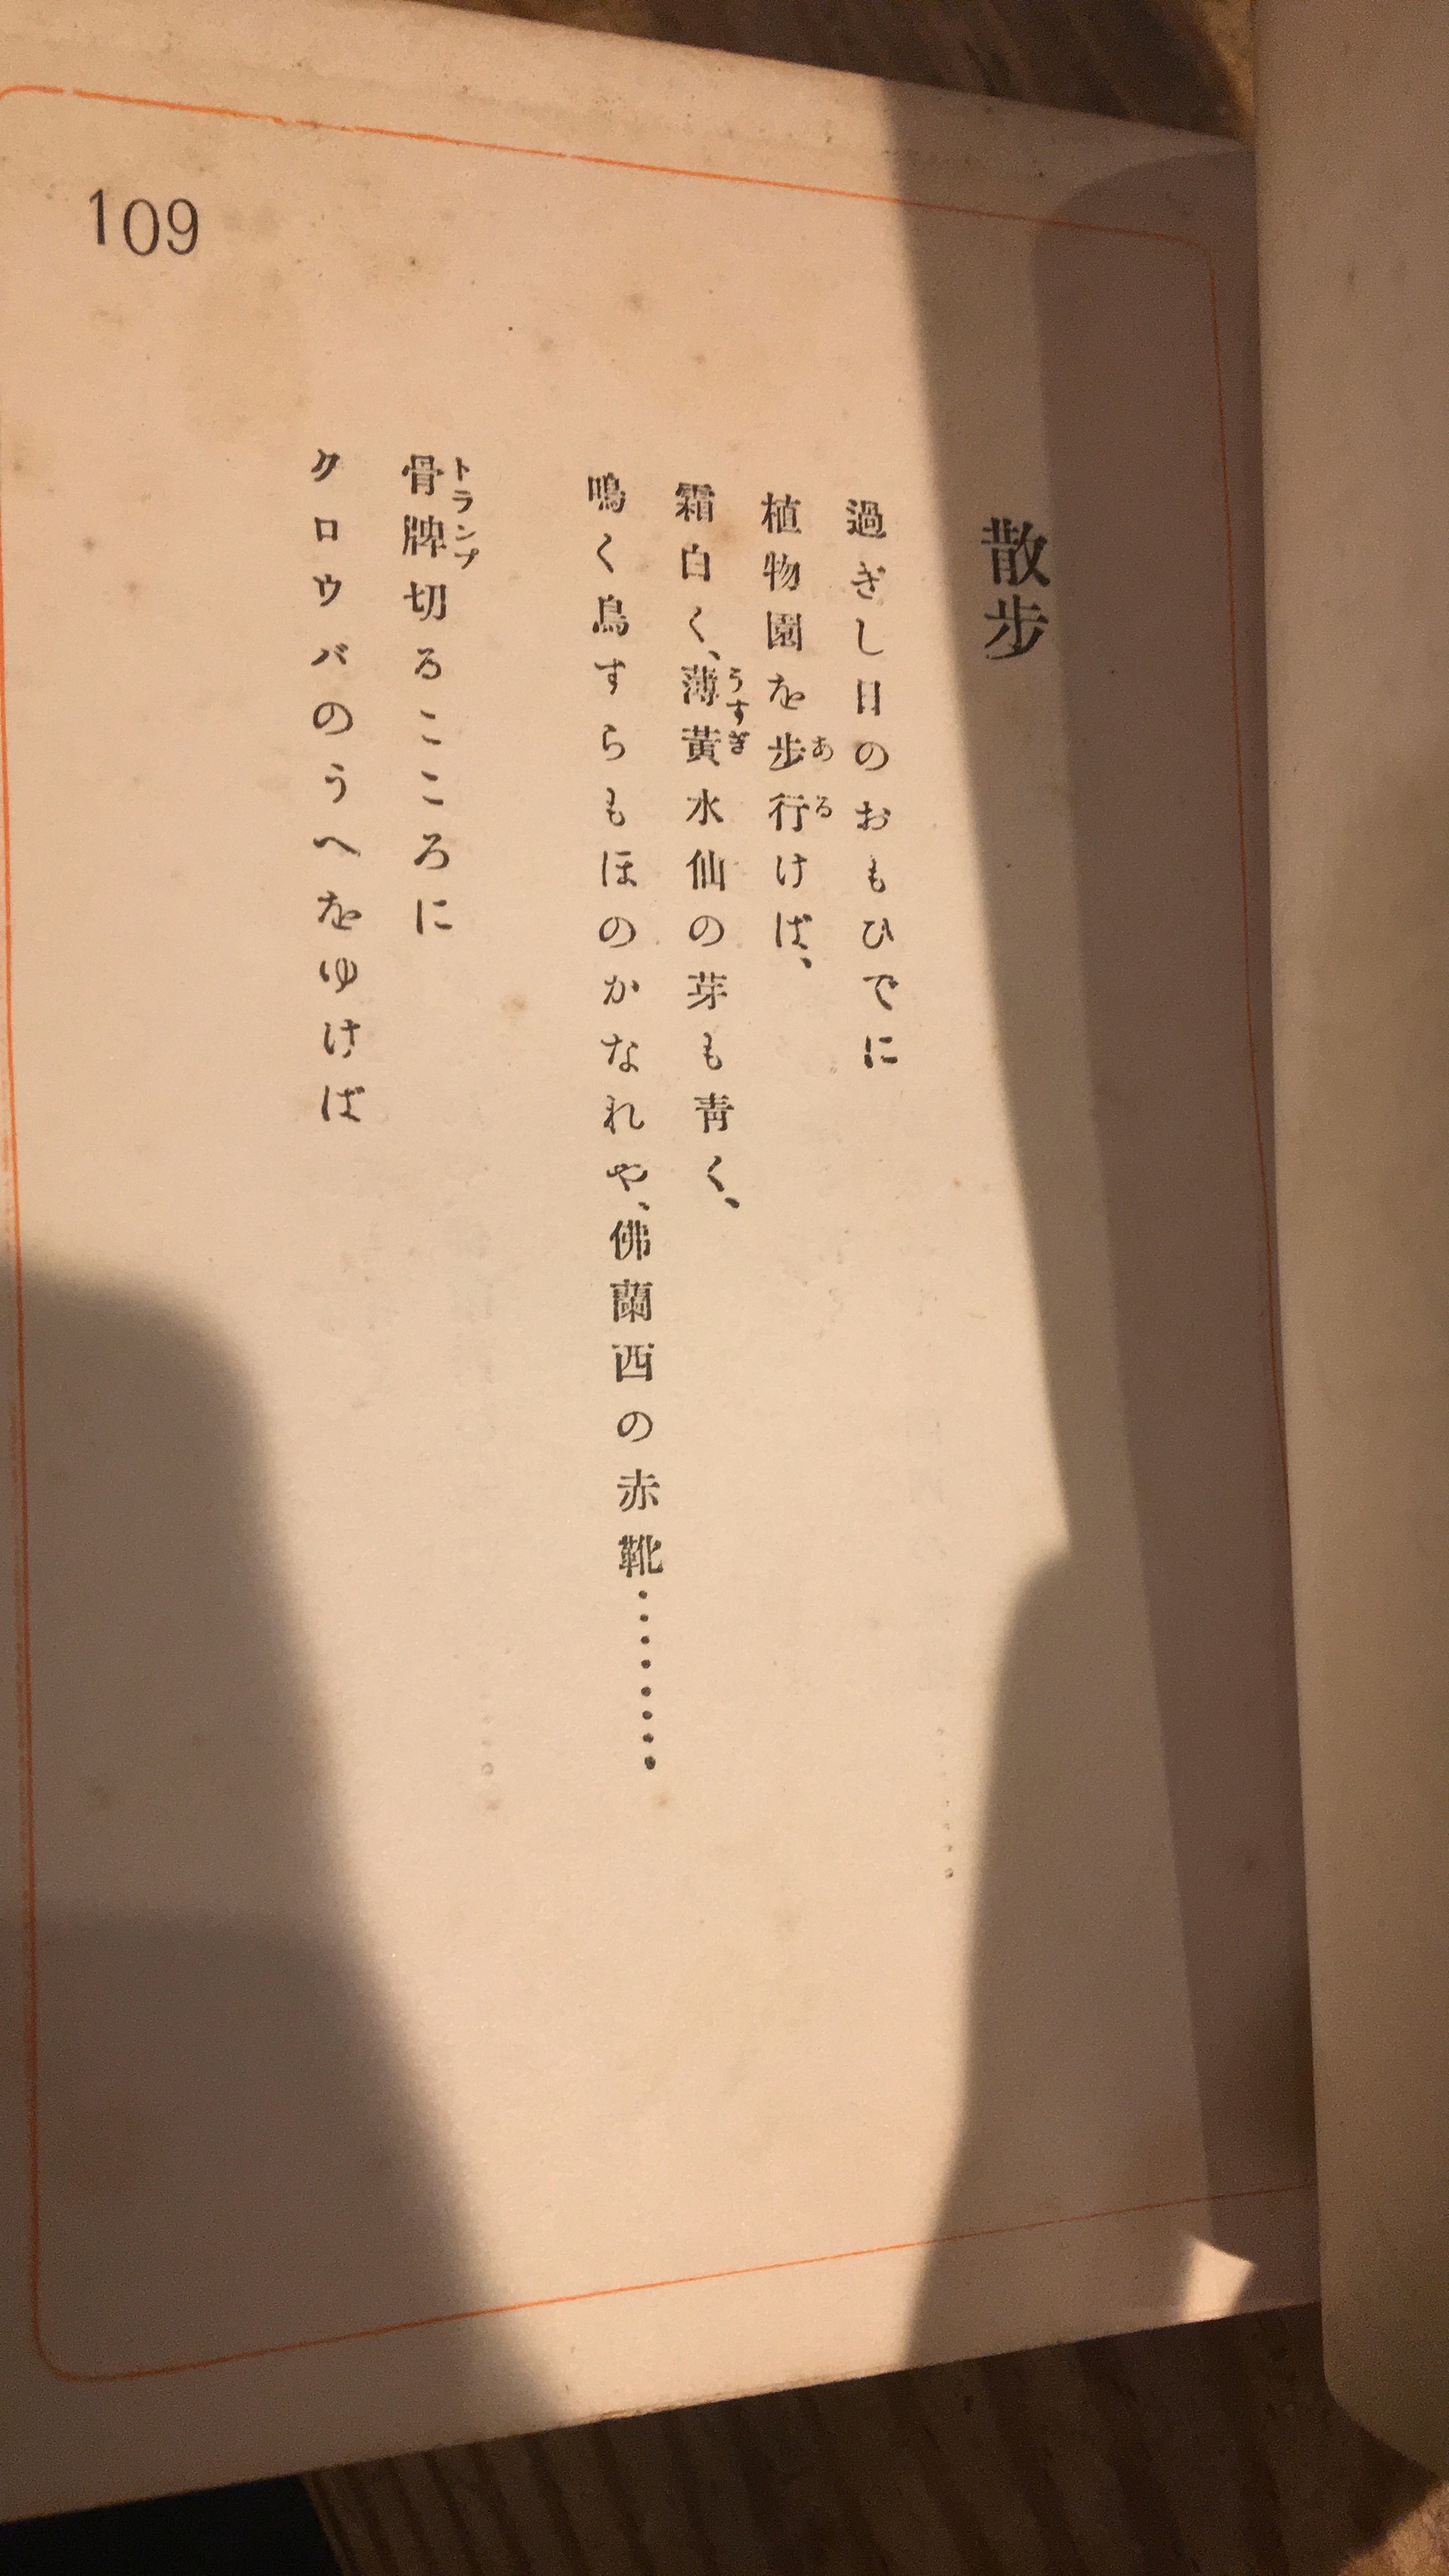 散步
過ぎし日のおもひでに
植物園を步行けば、
霜白く、薄黃水仙の芽も靑く、
鳴く鳥すらもほのかなれや、佛蘭西の赤靴………
骨牌切るこころに
クロウバのうへをゆけば
109